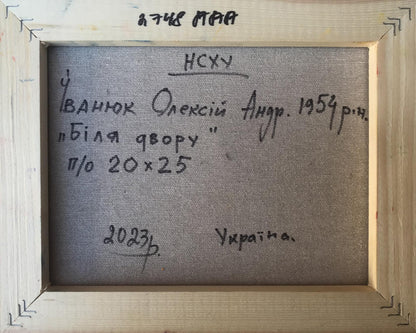 2748 МАА
НСХУ
Іванюк Олексій Андр. 1954 р.н.
„Біля двору"
п/о 20х25
2023р. Україна.